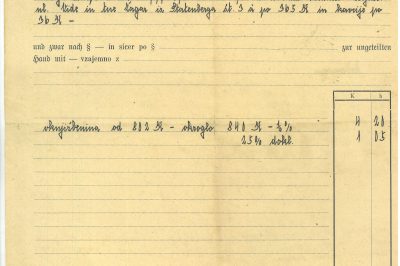 ml. Vide in Ine Kogar iz Statenberga št. 3 à po 365 K in Kavajo po
36 K –
und zwar nach § — in sicer po § zur ungeteilten
Hand mit — vzajemno z
K h
vknjižbenina od 802 K – okroglo 840 K – ½% 4 20
25% dokl. 1 05